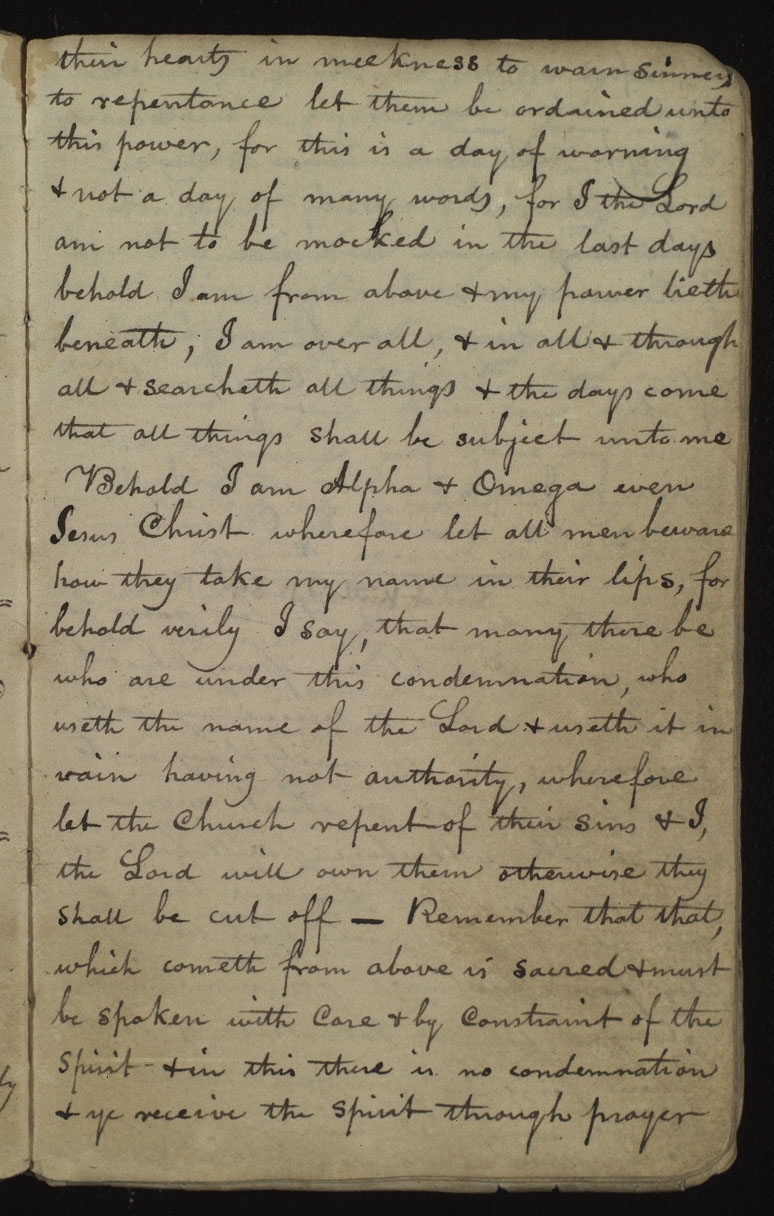 their hearts in meekness to warn sinners
to repentance let them be ordained unto
this power, for this is a day of warning
& not a day of many words, for I the Lord
am not to be mocked in the last days
behold I am from above & my power lieth
beneath, I am over all, & in all & through
all & searcheth all things & the days come
that all things shall be subject unto me
Behold I am Alpha & Omega even
Jesus Christ wherefore let all men beware
how they take my name in their lips, for
behold verily I say, that many there be
who are under this condemnation, who
useth the name of the Lord & useth it in
vain having not authority, wherefore
let the Church repent of their sins & I,
the Lord will own them otherwise they
shall be cut off — Remember that that,
which cometh from above is sacred & must
be spoken with Care & by Constraint of the
Spirit & in this there is no condemnation
& ye receive the Spirit through prayer